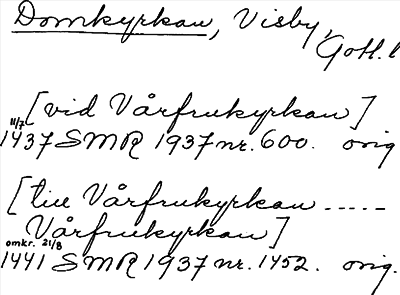 Domkyrkan, Visby,
Gotl. l
[vid Vårfrukyrkan]
11/7
1437 SMR 1937 nr. 600. orig
[till Vårfrukyrkan -----
Vårfrukyrkan]
omkr. 21/8
1441 SMR 1937 nr. 1452. orig.